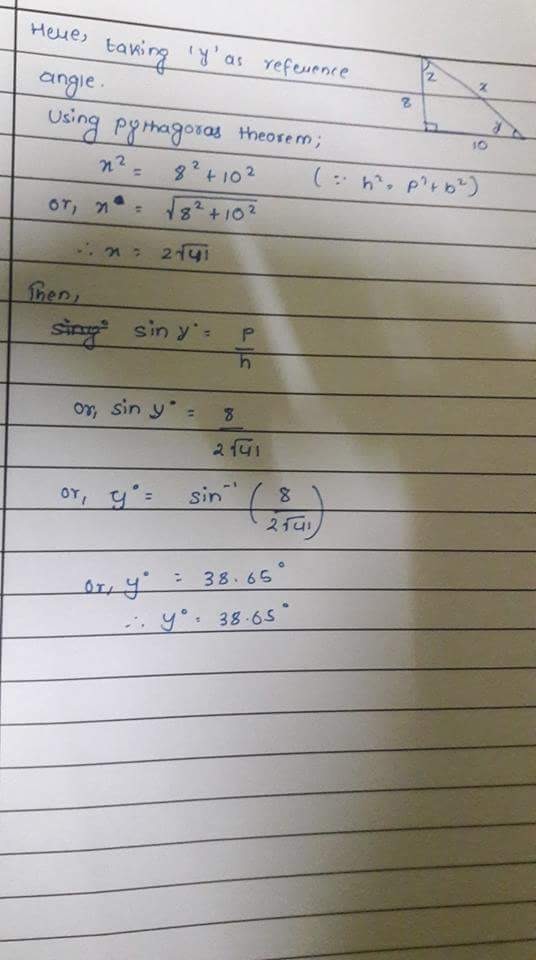 Here, taking 'y' as reference
angle.
Using pythagoras theorem;
x² = 8² + 10² (∵ h² = p² + b²)
or, x = √8² + 10²
∴ x = 2√41
Then,
sin y° = p/h
or, sin y° = 8/2√41
or, y° = sin⁻¹ (8/2√41)
or, y° = 38.65°
∴ y° = 38.65°
z
x
8
y
10